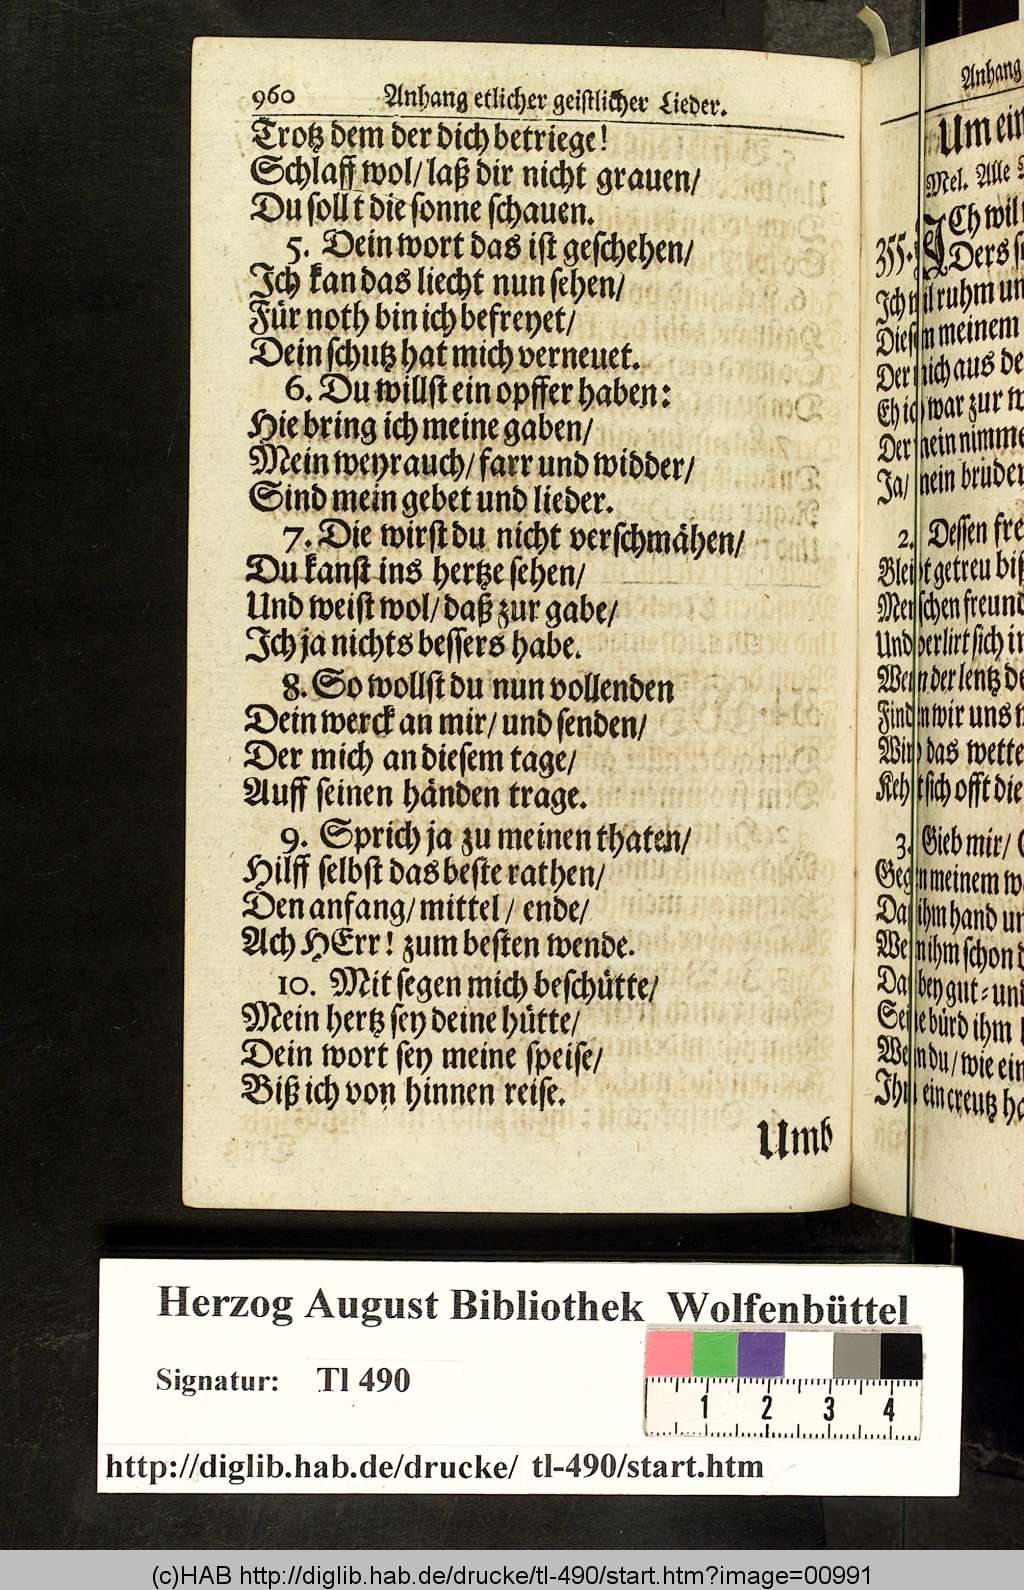 960 Anhang etlicher geistlicher Lieder.
Trotz dem der dich betriege!
Schlaff wol/ laß dir nicht grauen/
Du sollt die sonne schauen.
5. Dein wort das ist geschehen/
Ich kan das liecht nun sehen/
Für noth bin ich befreyet/
Dein schutz hat mich verneuet.
6. Du willst ein opffer haben:
Hie bring ich meine gaben/
Mein weyrauch/ farr und widder/
Sind mein gebet und lieder.
7. Die wirst du nicht verschmähen/
Du kanst ins hertze sehen/
Und weist wol/ daß zur gabe/
Ich ja nichts bessers habe.
8. So wollst du nun vollenden
Dein werck an mir/ und senden/
Der mich an diesem tage/
Auff seinen händen trage.
9. Sprich ja zu meinen thaten/
Hilff selbst das beste rathen/
Den anfang/ mittel/ ende/
Ach HErr! zum besten wende.
10. Mit segen mich beschütte/
Mein hertz sey deine hütte/
Dein wort sey meine speise/
Biß ich von hinnen reise.
Umb
Anhang
Um ein
Mel. Alle
355. ICh wil
Ders
Ich wil ruhm un
Diesen meinem
Der mich aus de
Eh ich war zur w
Der mein nimme
Ja/ mein brüder
2. Dessen fre
Bleibt getreu biß
Menschen freund
Und verlirt sich in
Wenn der lentz de
Finden wir uns
Wird das wette
Kehrt sich offt die
3. Gieb mir/
Gegen meinem w
Daß ihm hand un
Wenn ihm schon d
Dabey gut- und
Seine bürd ihm
Wenn du/ wie ein
Ihm ein creutz ha
Herzog August Bibliothek Wolfenbüttel
Signatur: Tl 490
1 2 3 4
http://diglib.hab.de/drucke/ tl-490/start.htm
(c)HAB http://diglib.hab.de/drucke/tl-490/start.htm?image=00991